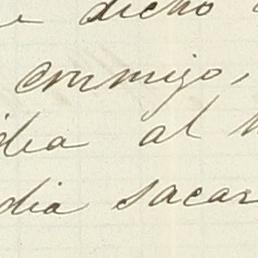 e dicho
conmigo,
idea al
dia sacar